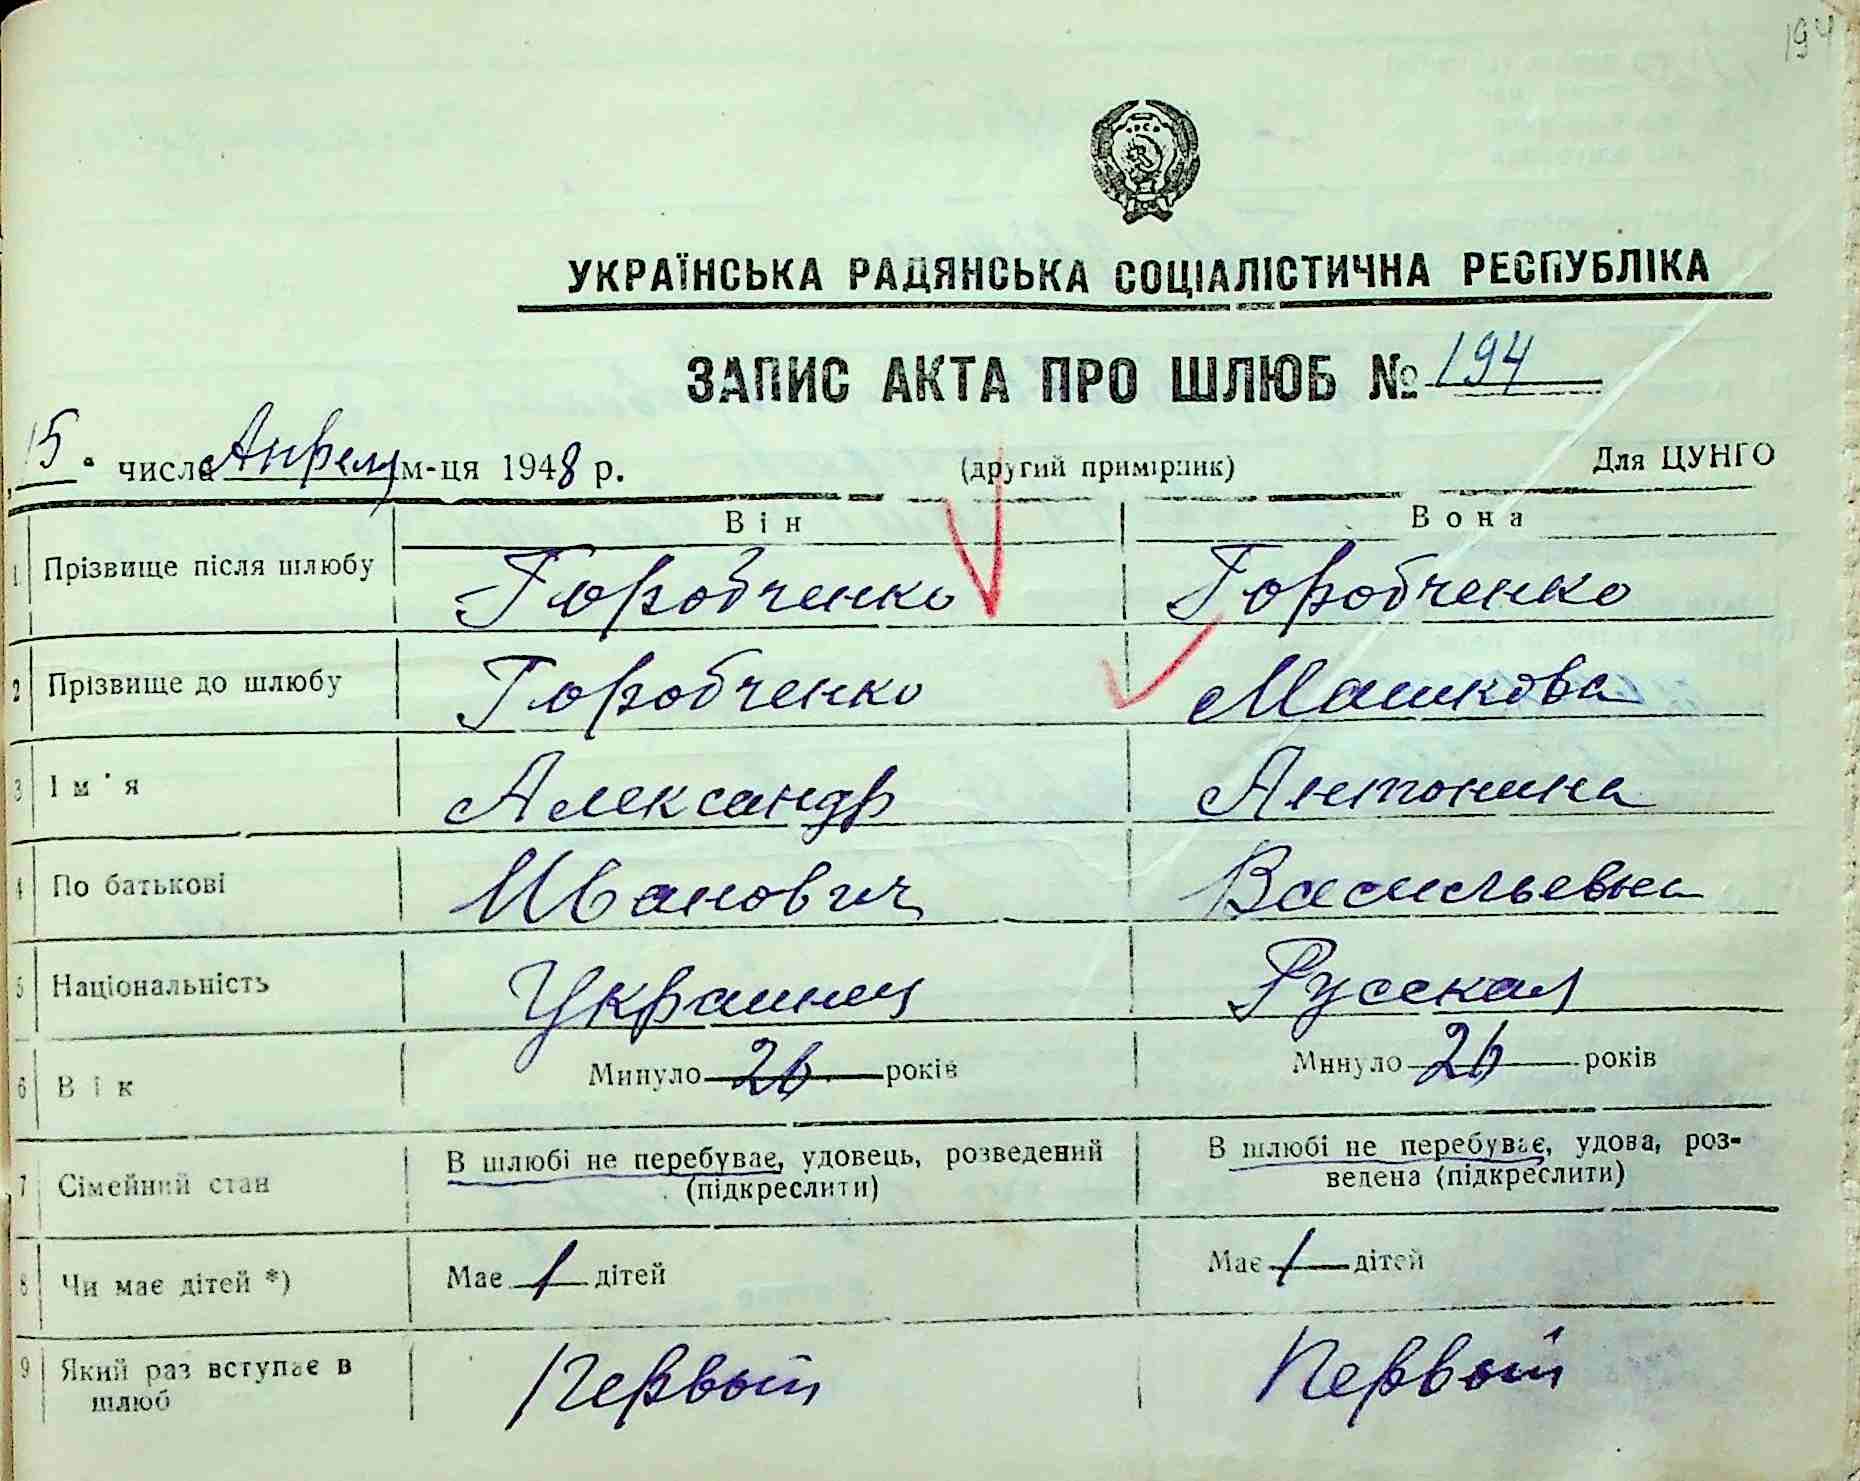 194
УКРАЇНСЬКА РАДЯНСЬКА СОЦІАЛІСТИЧНА РЕСПУБЛІКА
ЗАПИС АКТА ПРО ШЛЮБ № 194
15. числа Апреля м-ця 1948 р. (другий примірник) Для ЦУНГО
Він Вона
1 Прізвище після шлюбу Горобченко Горобченко
2 Прізвище до шлюбу Горобченко Машкова
3 Ім'я Александр Антонина
4 По батькові Иванович Васильевна
5 Національність Украинец Русская
6 Вік Минуло 26 років Минуло 26 років
7 Сімейний стан В шлюбі не перебуває, удовець, розведений (підкреслити) В шлюбі не перебуває, удова, роз-
ведена (підкреслити)
8 Чи має дітей *) Має 1 дітей Має 1 дітей
9 Який раз вступає в шлюб Первый Первый